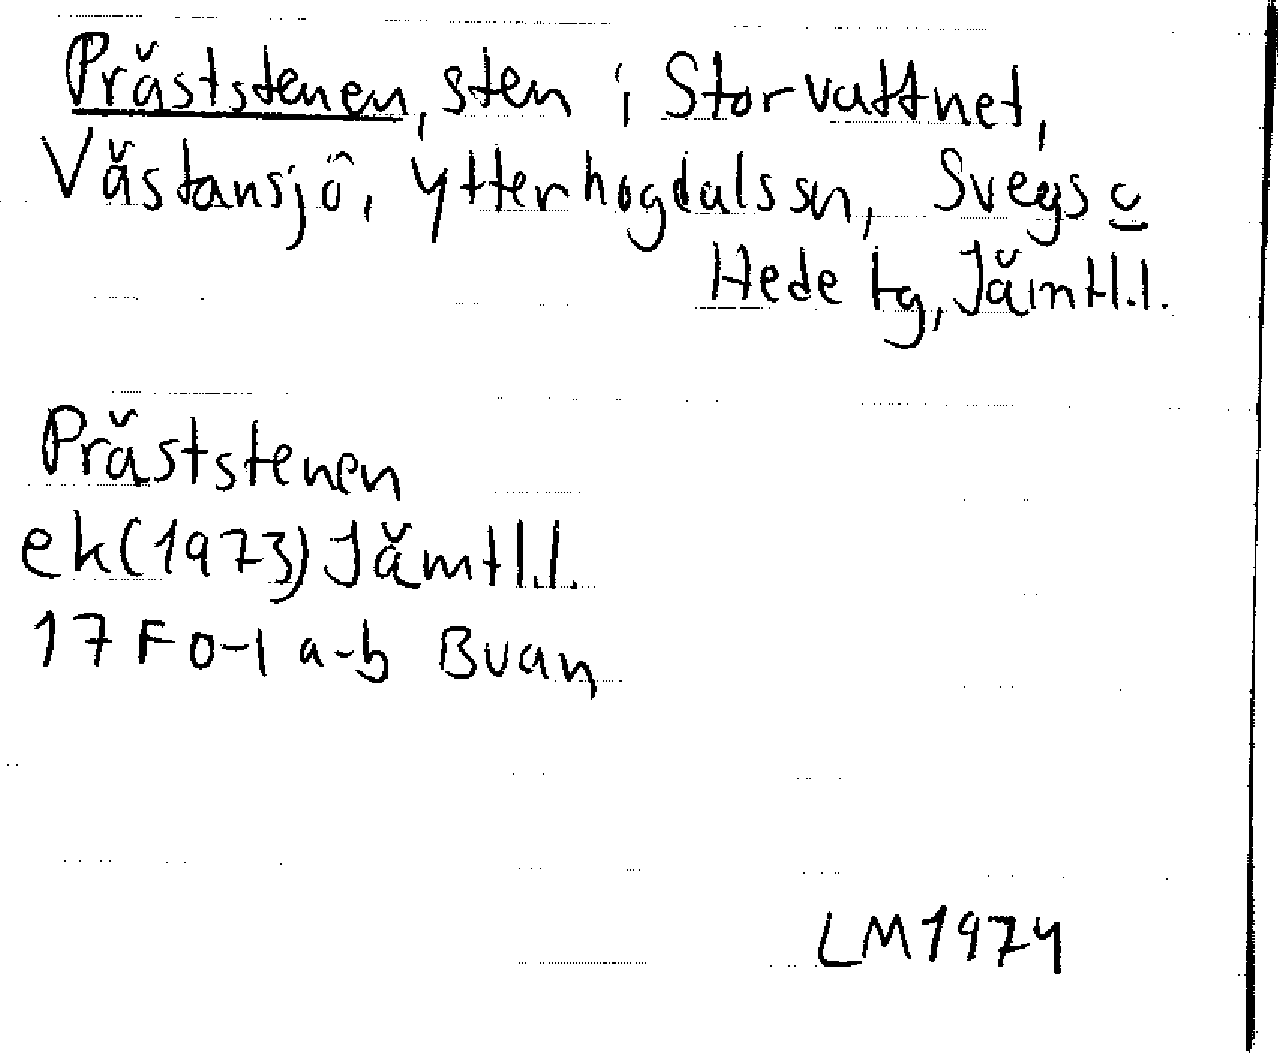 Präststenen, sten i Storvattnet,
Västansjö, Ytterhogdals sn, Svegs o
Hede tg, Jämtl.l.
Präststenen
ek(1973) Jämtl.l.
17 F 0-1 a-b Buan
LM1974